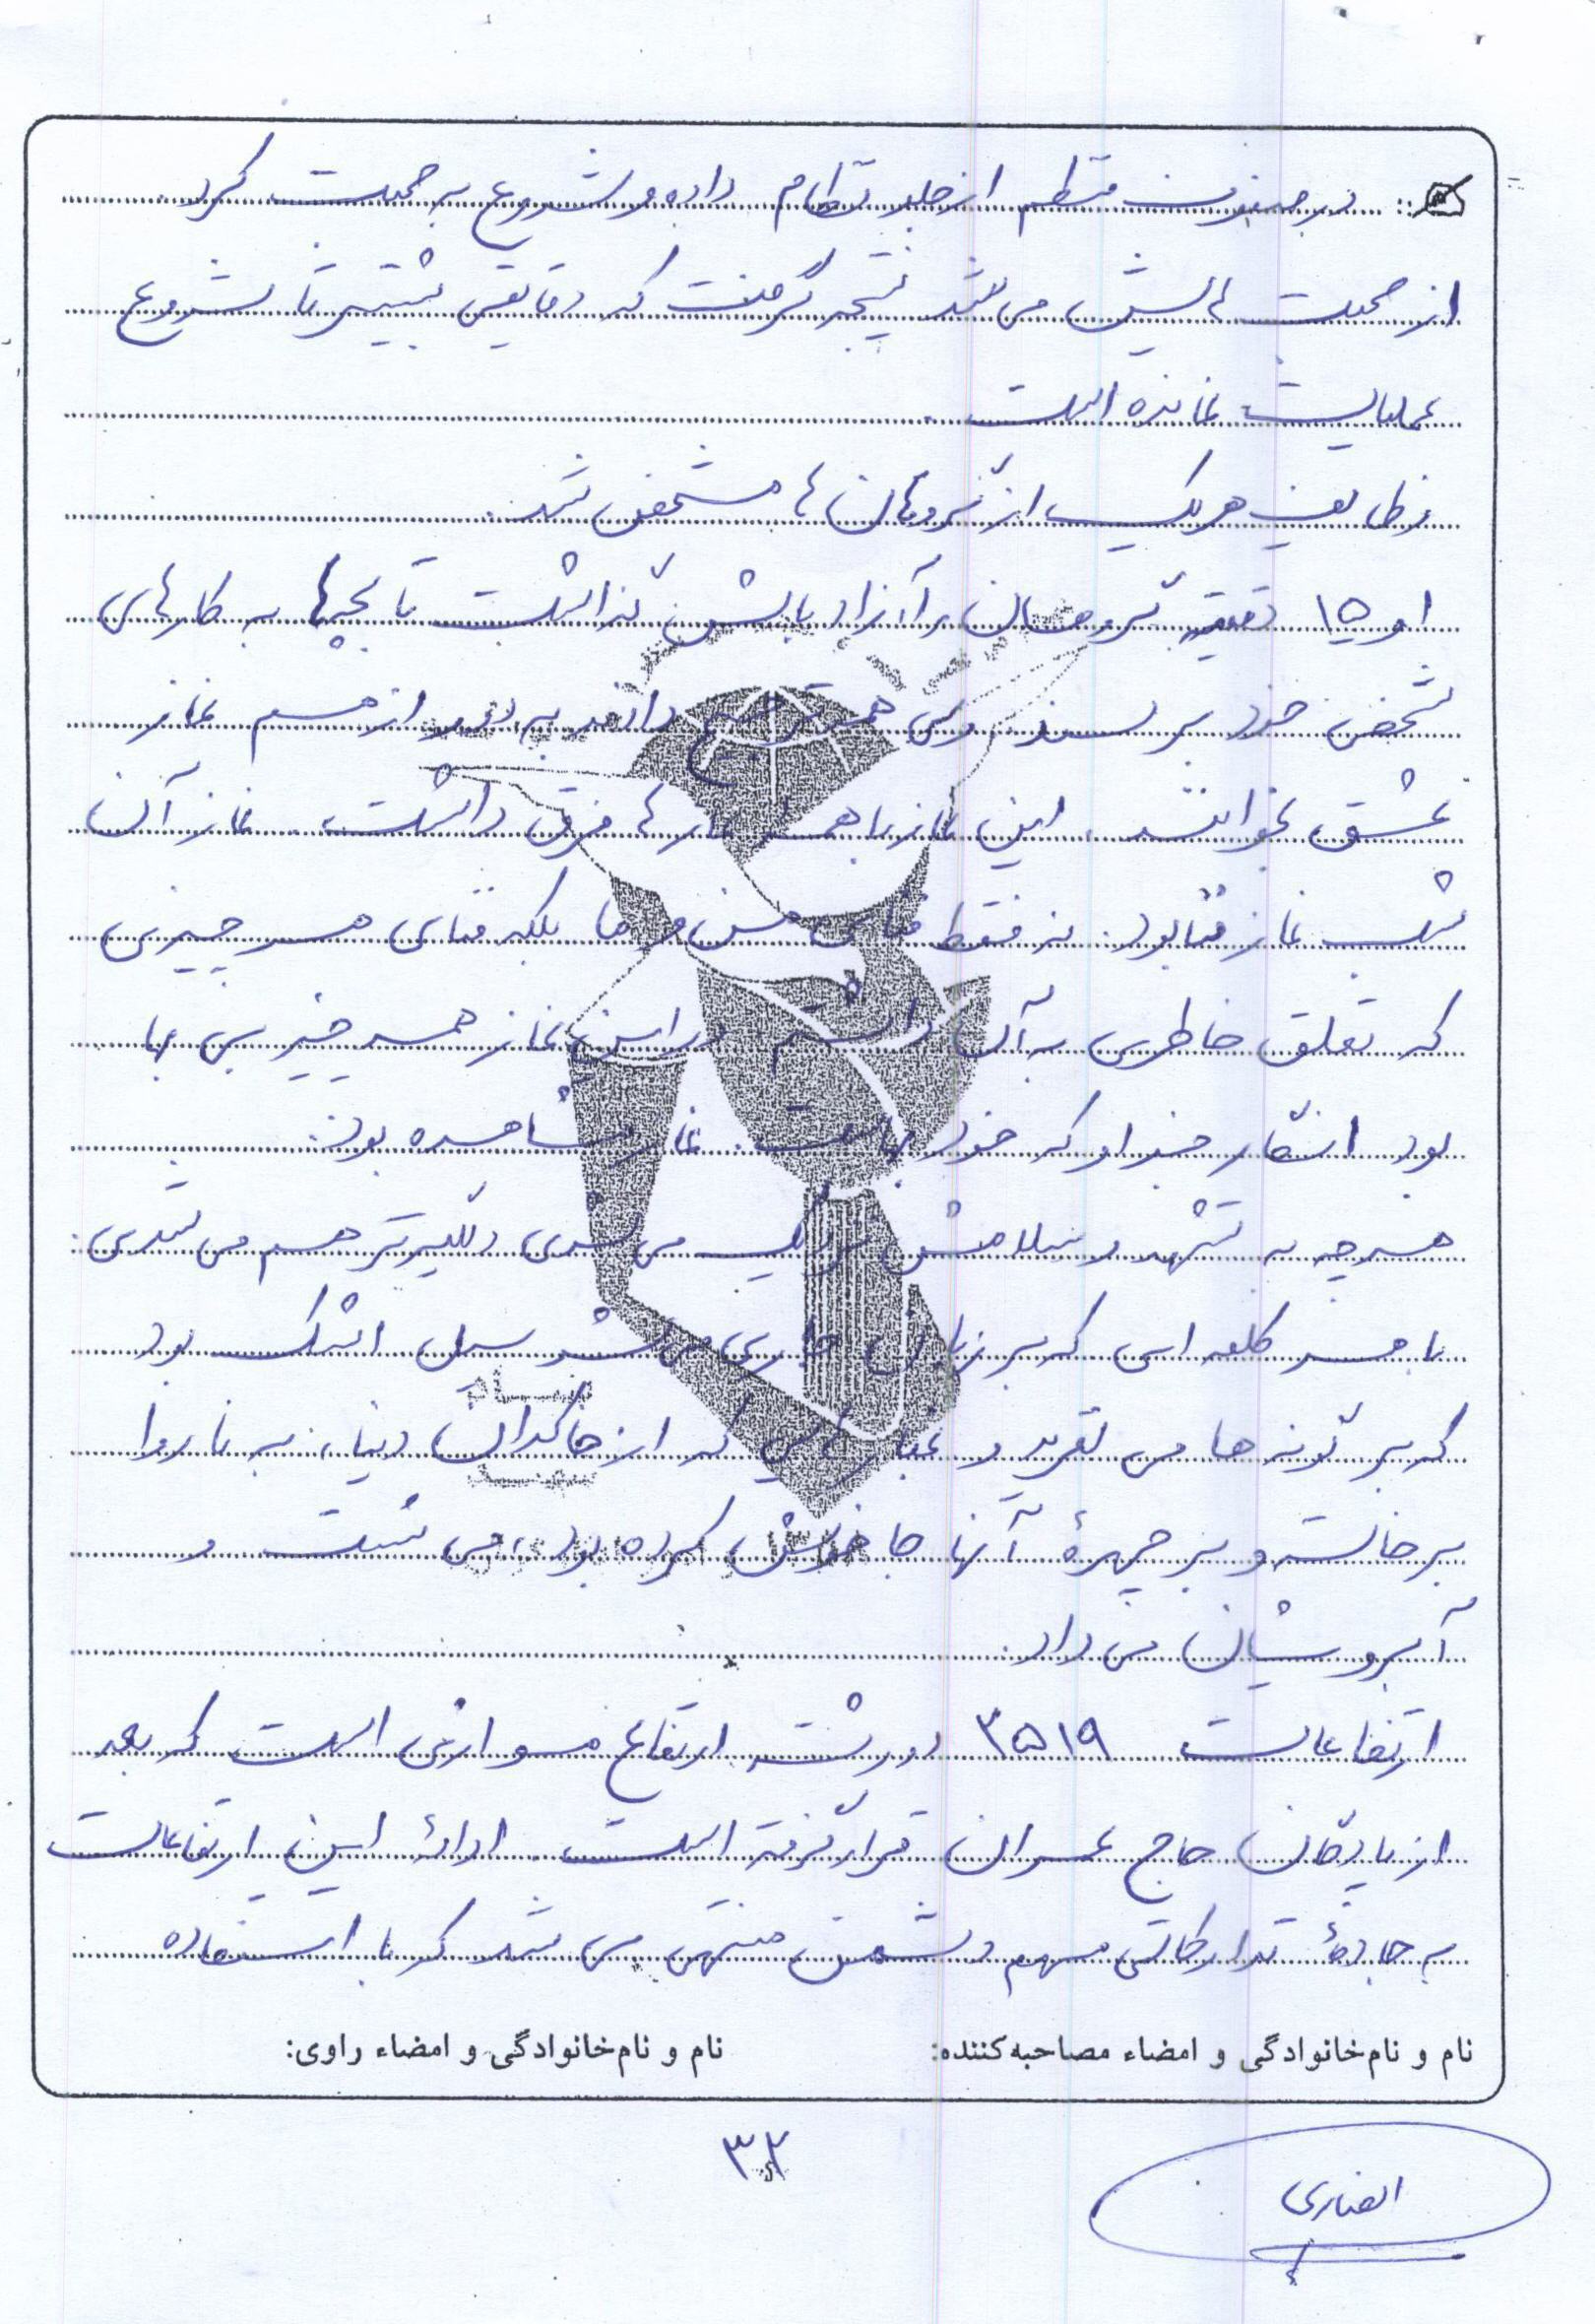 در صفوف منظم از جلو نظام داده و شروع به صحبت کرد.
از صحبت هایش می شد نتیجه گرفت که دقایقی بیشتر تا شروع
عملیات نمانده است.
وظایف هریک از گروهان ها مشخص شد.
او ۱۵ دقیقه گروهان را آزاد باش گذاشت تا بچه‌ها به کارهای
شخصی خود برسند ولی همه ترجیح دادند به دور از هم نماز
عشق بخوانند. این نماز با همه نمازها فرق داشت. نماز آن
شب نماز فنا بود. نه فقط فنای من و ما بلکه فنای هر چیزی
که تعلق خاطری به آن داشتم در این نماز همه چیز بی بها
بود انگار جز او که خود بهاست. نماز مشاهده بود.
هرچه به تشهد و سلامش نزدیک می شدی دلگیرتر هم می شدی.
با هر کلمه ای که بر زبان جاری می شد سیل اشک بود
که بر گونه ها می لغزید و غبارهایی که از خاکدان دنیا، به ناروا
برخاسته و بر چهرهٔ آنها جا خوش کرده بود، می شست و
آبرویشان می داد.
ارتفاعات ۲۵۱۹ دو رشته ارتفاع موازی است که بعد
از پادگان حاج عمران قرار گرفته است. ادامهٔ این ارتفاعات
به جادهٔ تدارکاتی مهم دشمن منتهی می شد که با استفاده
نام و نام‌خانوادگی و امضاء مصاحبه‌کننده: نام و نام‌خانوادگی و امضاء راوی:
۳۲
انصاری